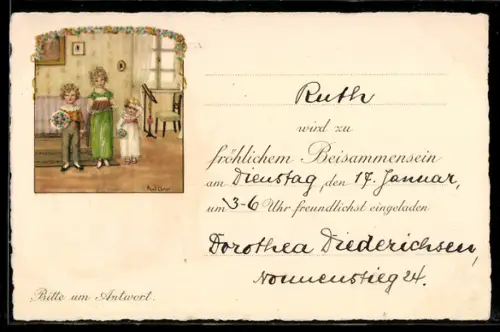 Ruth
wird zu
fröhlichem Beisammensein
am Dienstag, den 17. Januar,
um 3-6 Uhr freundlichst eingeladen
Dorothea Diederichsen,
Nonnenstieg 24.
Bitte um Antwort.